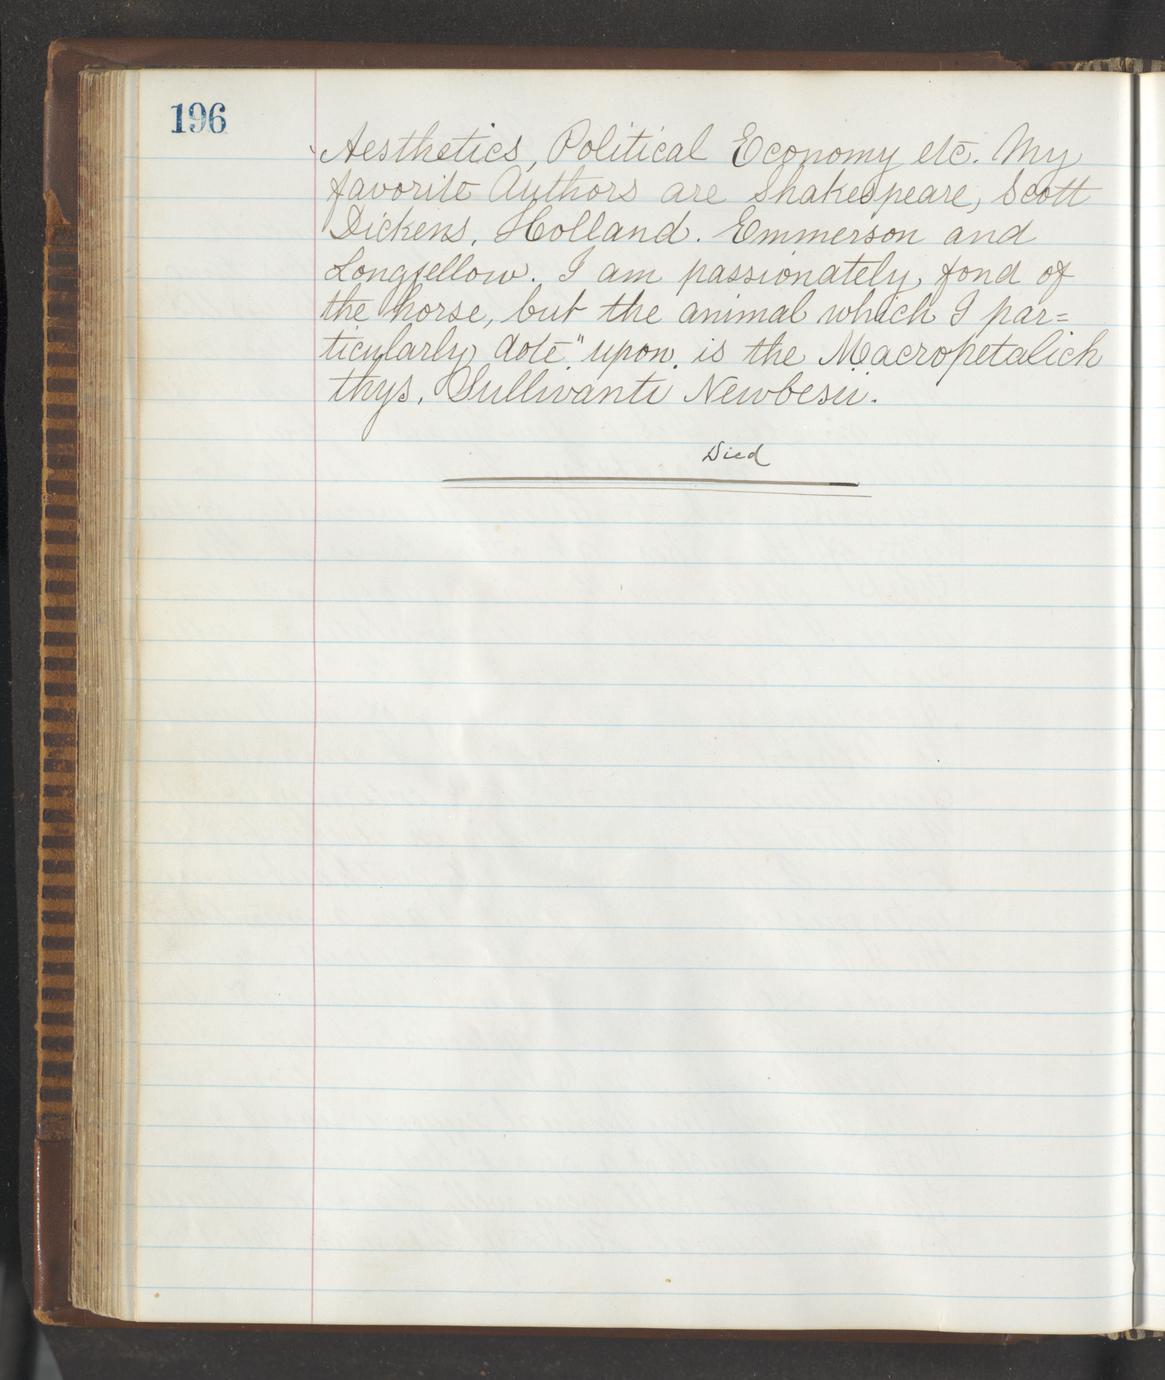 196
Aesthetics, Political Economy etc. My
favorite Authors are Shakespeare, Scott
Dickens, Holland. Emmerson and
Longfellow. I am passionately fond of
the horse, but the animal which I par=
ticularly dote" upon. is the Macropetalich
thys. Sullivanti Newbesii.
Died